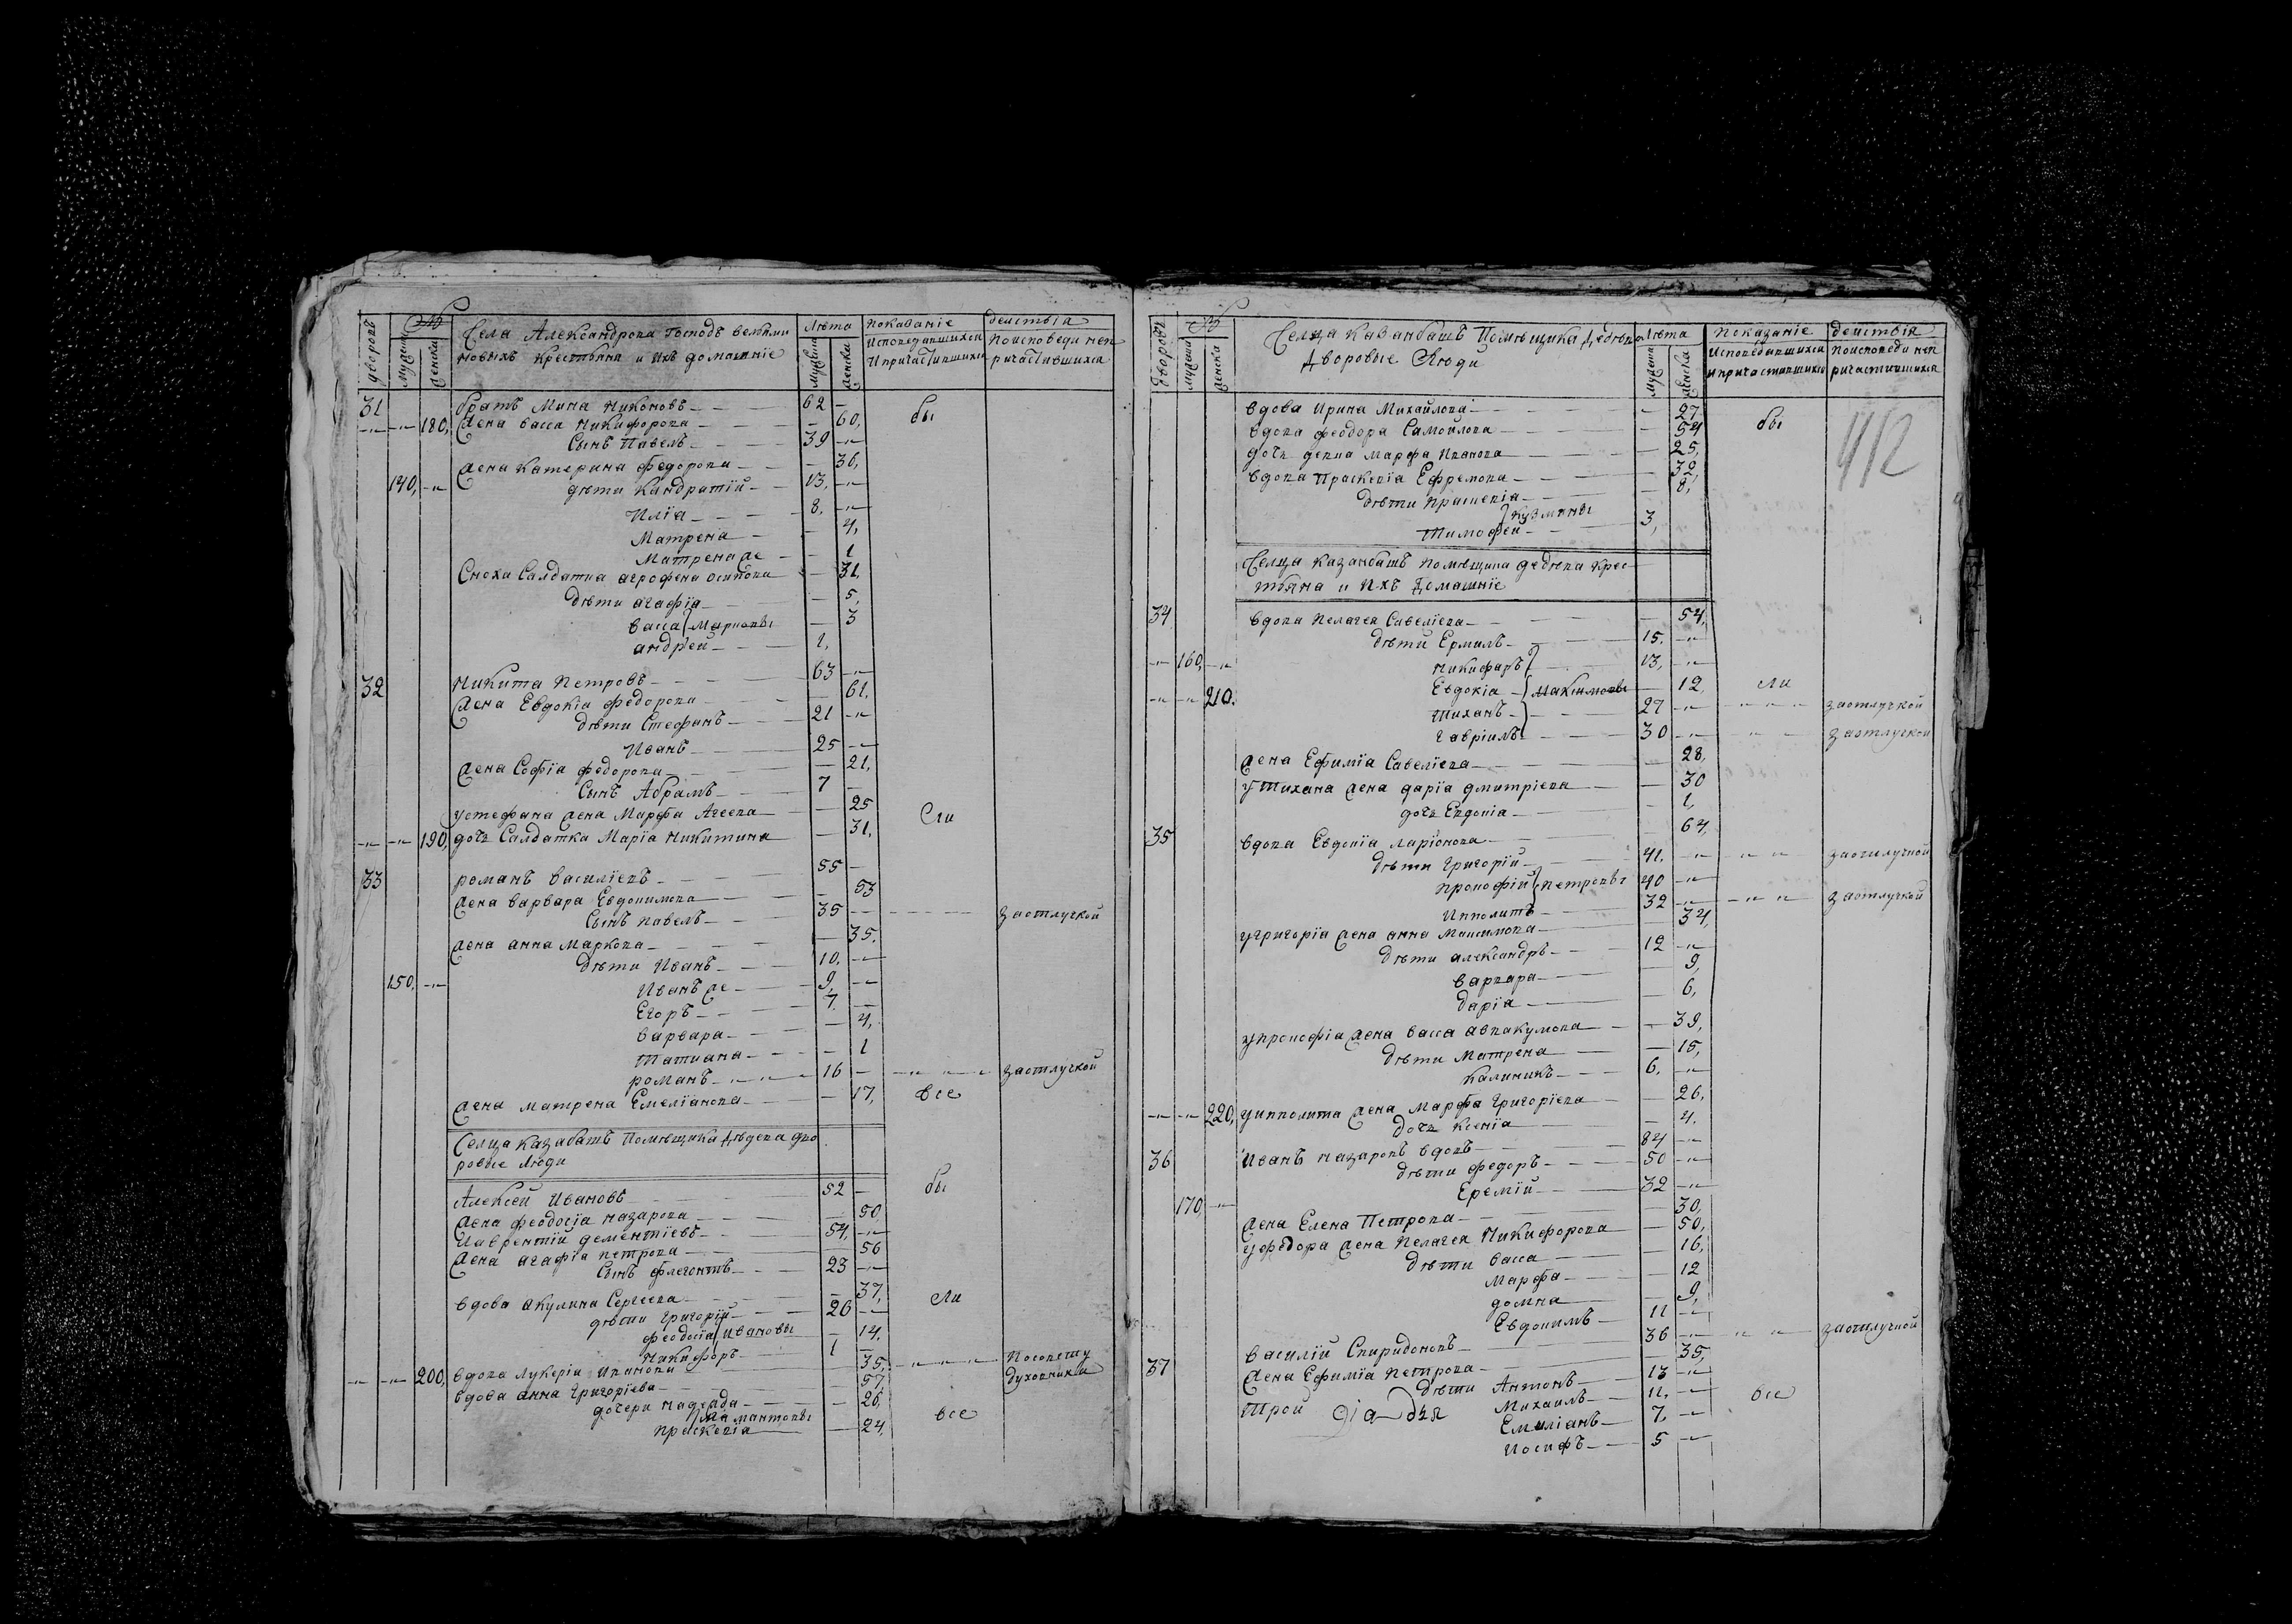 дворовъ № Села Александрова Господъ Векими Лѣта показаніе действія
мужеска женска новыхъ крестьяна и Ихъ домашніе мужеска женска Исповедавшихся Ипричастившихся Поисповеди неп ричастившихся
31 братъ Мина Никоновъ 62 — бы
180, Жена васса Никифорова — 60,
Сынъ Павелъ 39
Жена Катерина Федорова — 36,
140, дѣти Кандратій 13,
Иліа 8,
Матрена — 4,
Матрена же — 1
Сноха Салдатка агрофена осипова 31,
дѣти агафіа — 5,
васса Марковы — 3
андрей 1,
32 Никита Петровъ 63
Жена Евдокіа федорова — 61,
дѣти Стефанъ 21
Иванъ 25
Жена Софіа федорова — 21,
Сынъ Абрамъ 7
устефана жена Марфа Агеева — 25 Сли
190, дочь Салдатка Маріа Никитина — 31,
33 романъ василіевъ 55 —
Жена варвара Евдокимова — 53
Сынъ павелъ 35 — заотлучкой
Жена анна Маркова — 35,
дѣти Иванъ 10,
150, Иванъ же 9,
Егоръ 7,
варвара — 4,
татиана — 1
романъ 16 — заотлучкой
Жена матрена Емеліанова — 17, все
Селца казабашъ Помѣщика Дѣдева дво
ровые люди
Алексей Ивановъ 52 — бы
Жена феодосіа назарова — 50,
Лаврентій дементіевъ 54,
Жена агафіа петрова — 56
Сынъ флегонтъ 23
вдова акулина Сергеева — 37, сли
дѣти Григорій 26
феодосіа Ивановы — 14,
Никифоръ 1 —
200, вдова лукеріа Иванова 35, Посовету
вдова анна Григоріева — 57, духовника
дочери надежда — 26,
мантовы все
прасковіа — 24,
дворовъ № Селца Казанбашъ Помѣщика Дедева Лѣта показаніе действія
мужеска женска Дворовые Люди мужеска женска Исповедавшихся Ипричастившихся Поисповеди неп ричастившихся
вдова Ирина Михайлова — 27, бы 412
вдова феодора Самойлова — 54
дочь девка марфа Иванова — 25,
вдова Праскевіа Ефремова — 32,
дѣти прасковіа — 8,
Кузмины
Тимофей 3,
Селца казанбашъ помещика дедева крес
тьяна и Ихъ Домашніе
34 вдова Пелагея Савеліева — 54,
дѣти Ермилъ 15,
160, Никифаръ 13,
210, Евдокіа Максимовы — 12, сли
Тиханъ 27 заотлучкой
Гавріилъ 30 заотлучкой
Жена Ефиміа Савеліева 28,
у Тихана жена даріа дмитріева — 30
дочь Евдокіа — 1,
35 вдова Евдокіа ларіонова 64,
дѣти Григорій 41, заотлучкой
прокофій петровы 40
Ипполитъ 32 заотлучкой
угригоріа жена анна Максимова 34,
дѣти александръ 12
варвара — 9,
даріа — 6,
упрокофіа жена васса аввакумова — 39,
дѣти Матрена — 15,
Калиникъ 6,
220, уипполита жена марфа григоріева — 26,
дочь ксеніа — 4,
36 Иванъ назаровъ вдовъ 84
дѣти федоръ 50
170, Еремій 32
Жена Елена Петрова 30,
уфедора жена Пелагея Никифорова — 50,
дѣти васса — 16,
марфа — 12
домна — 9,
Евдокимъ 11
37 василій Спиридоновъ 36 заотлучкой
Жена Ефиміа петрова — 35,
дѣти Антонъ 13
трой Михаилъ 11, все
Емиліанъ 7,
Иосифъ 5